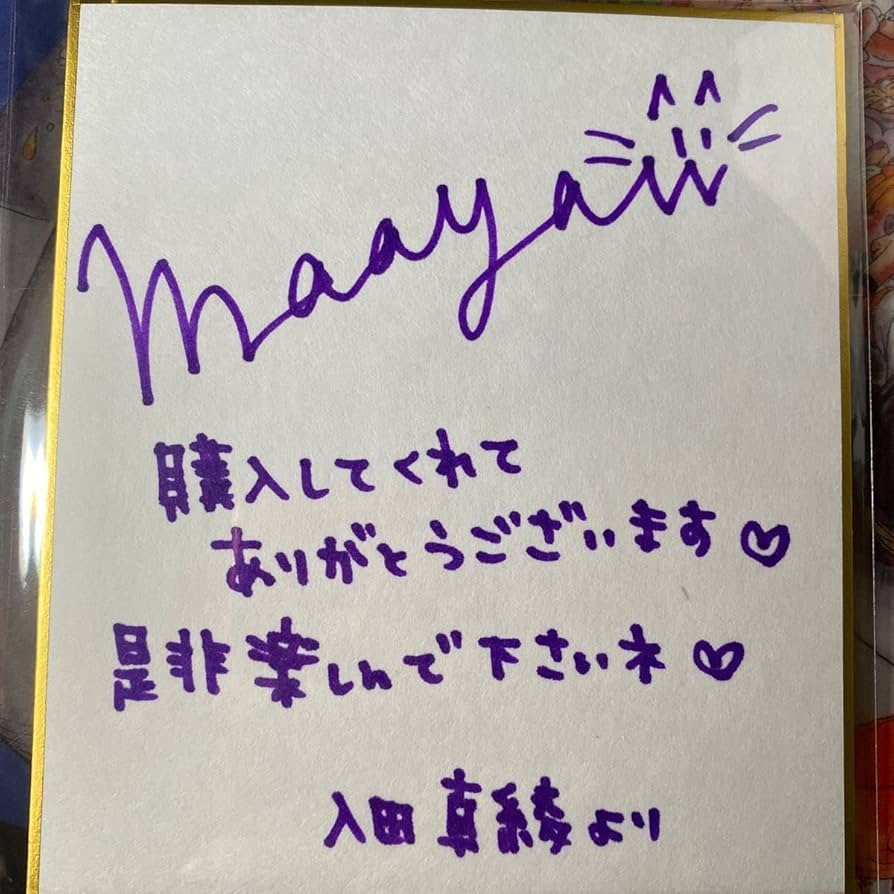 maaya
購入してくれて
ありがとうございます♡
是非楽しんで下さいネ♡
入田真綾より